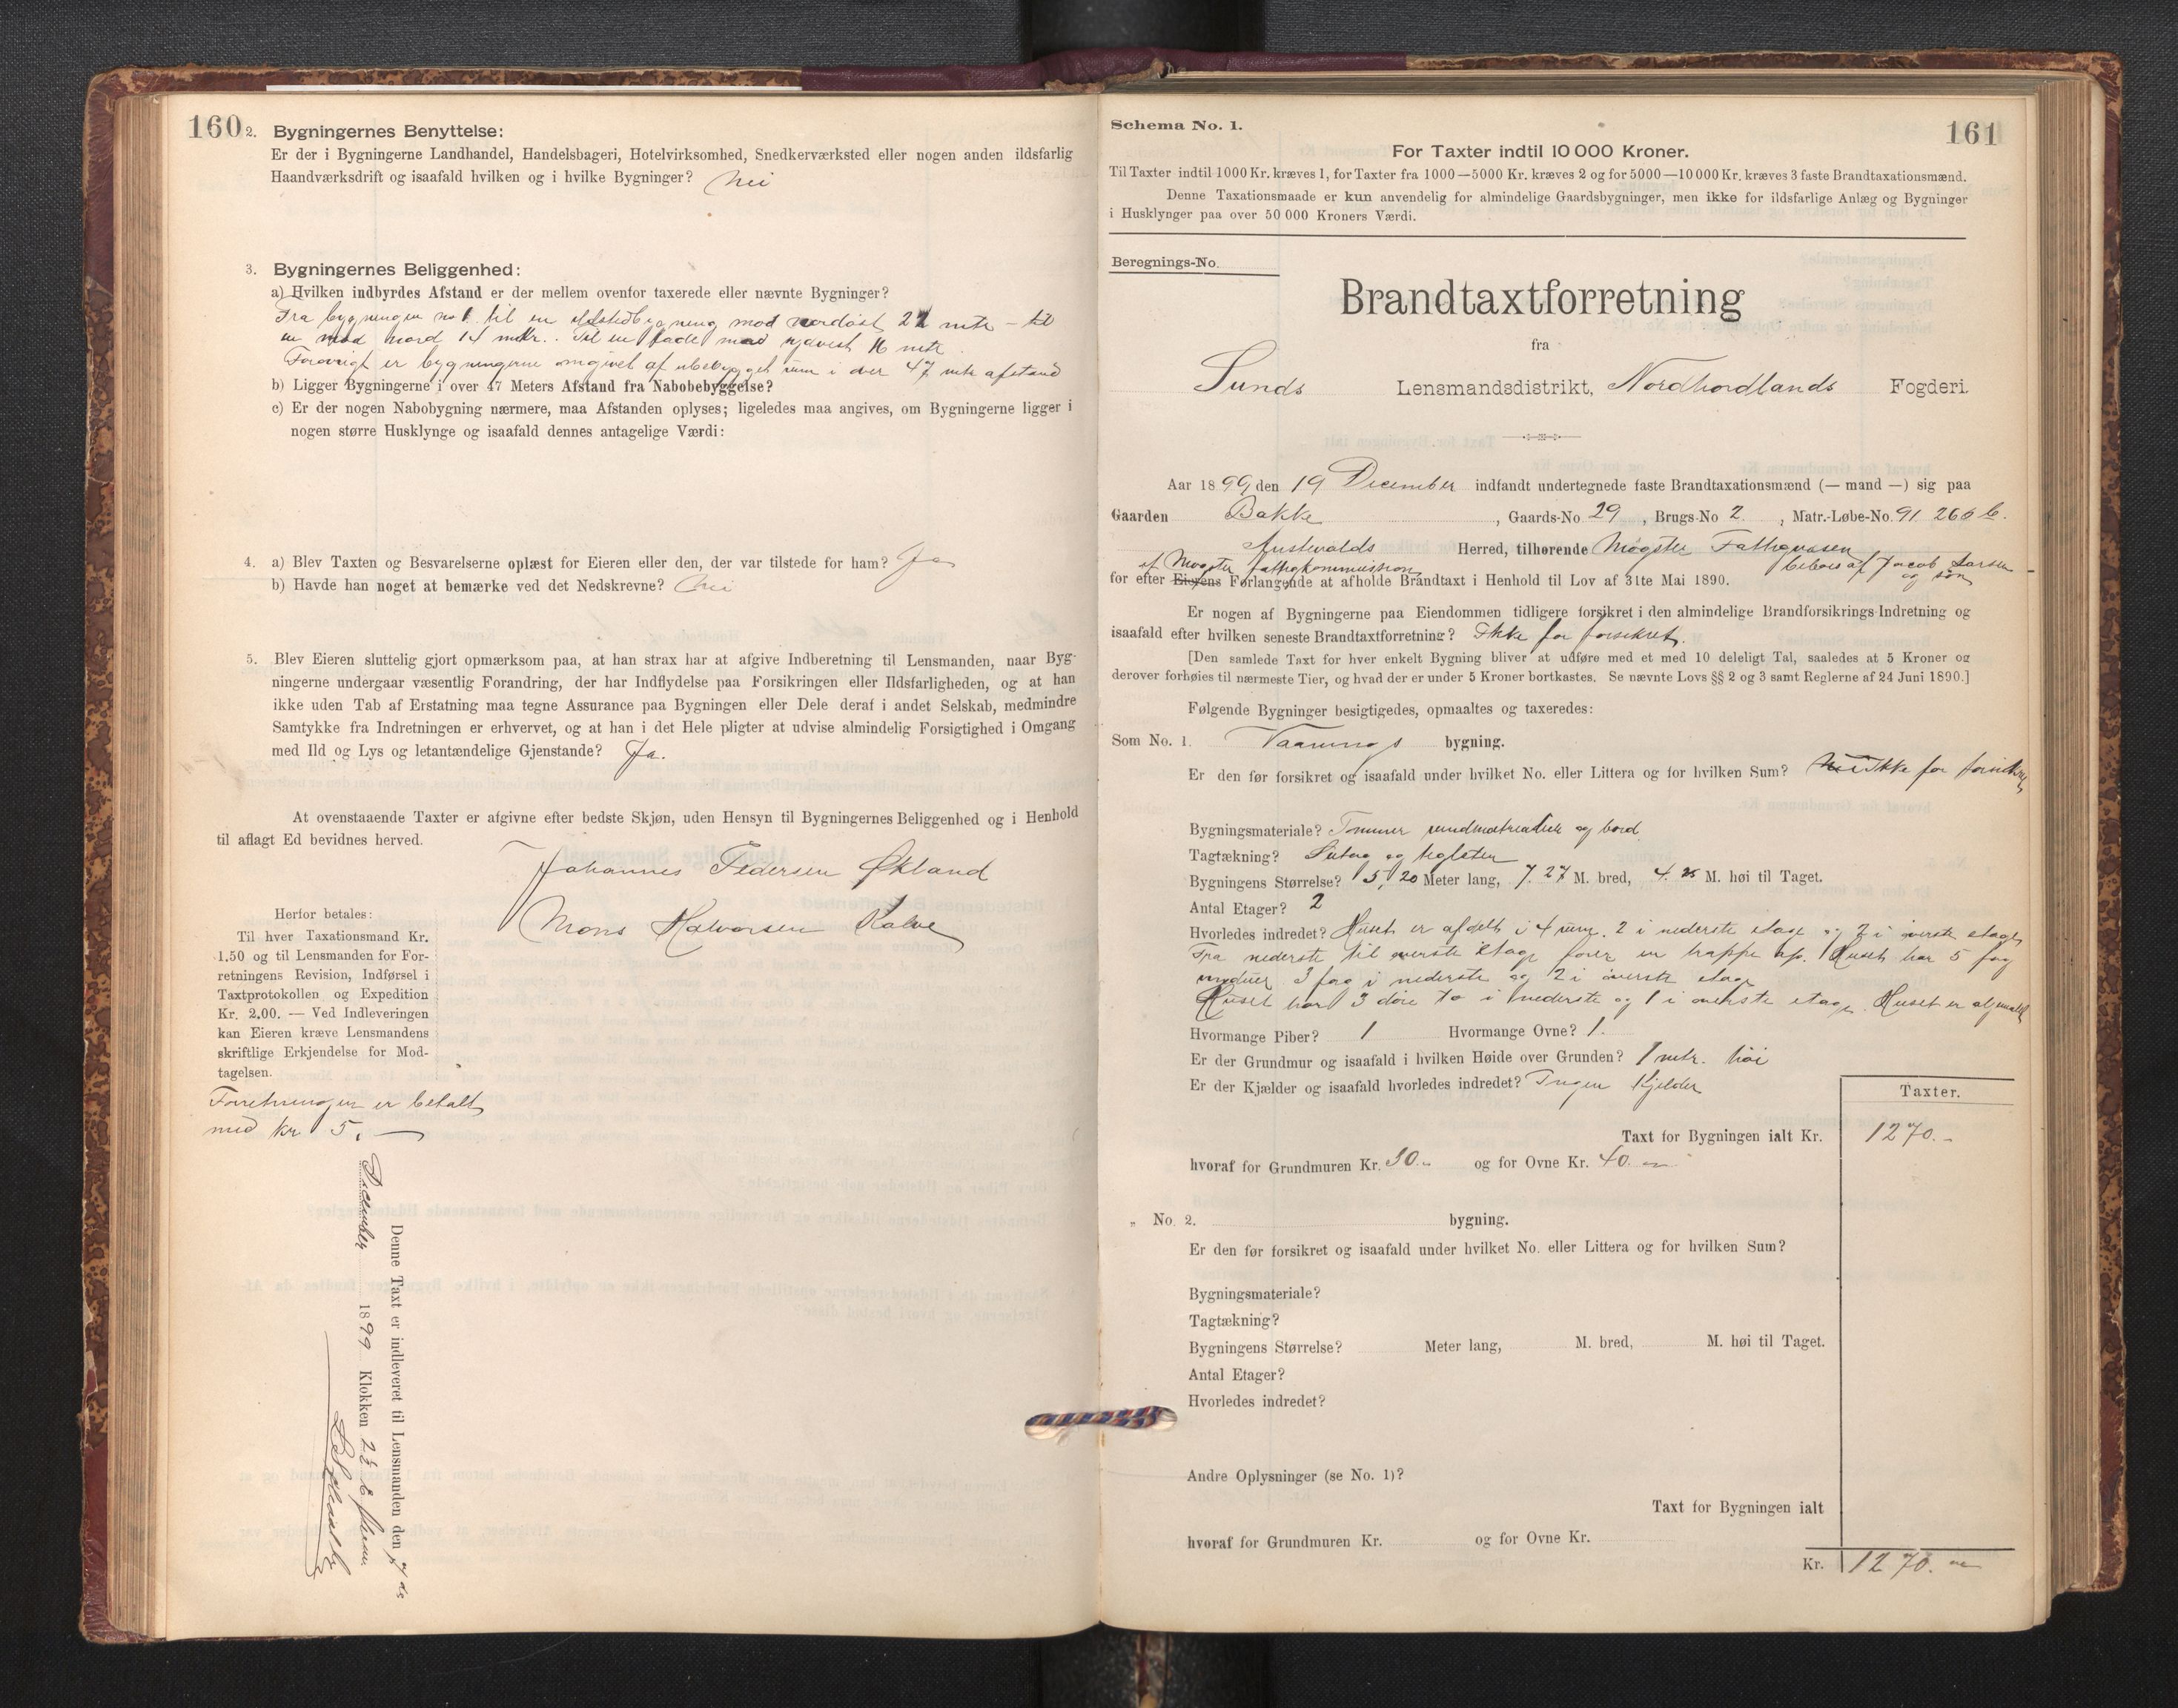 160
2. Bygningernes Benyttelse:
Er der i Bygningerne Landhandel, Handelsbageri, Hotelvirksomhed, Snedkerværksted eller nogen anden ildsfarlig
Haandværksdrift og isaafald hvilken og i hvilke Bygninger? Nei
3. Bygningernes Beliggenhed:
a) Hvilken indbyrdes Afstand er der mellem ovenfor taxerede eller nævnte Bygninger?
Fra bygningen no 1 til en ildstedbygning mod nordøst 22 mtr – til
en mod nord 14 mtr. Til en lade mod sydvest 16 mtr
Forøvrigt er bygningerne omgivet af ubebygget rum i over 47 mtr afstand
b) Ligger Bygningerne i over 47 Meters Afstand fra Nabobebyggelse?
c) Er der nogen Nabobygning nærmere, maa Afstanden oplyses; ligeledes maa angives, om Bygningerne ligger i
nogen større Husklynge og isaafald dennes antagelige Værdi:
4. a) Blev Taxten og Besvarelserne oplæst for Eieren eller den, der var tilstede for ham? Ja
b) Havde han noget at bemærke ved det Nedskrevne? Nei
5. Blev Eieren sluttelig gjort opmærksom paa, at han strax har at afgive Indberetning til Lensmanden, naar Byg-
ningerne undergaar væsentlig Forandring, der har Indflydelse paa Forsikringen eller Ildsfarligheden, og at han
ikke uden Tab af Erstatning maa tegne Assurance paa Bygningen eller Dele deraf i andet Selskab, medmindre
Samtykke fra Indretningen er erhvervet, og at han i det Hele pligter at udvise almindelig Forsigtighed i Omgang
med Ild og Lys og letantændelige Gjenstande? Ja.
At ovenstaaende Taxter er afgivne efter bedste Skjøn, uden Hensyn til Bygningernes Beliggenhed og i Henhold
til aflagt Ed bevidnes herved.
Johannes Pedersen Økland
Mons Halvorsen Kalve
Herfor betales:
Til hver Taxationsmand Kr.
1.50 og til Lensmanden for For-
retningens Revision, Indførsel i
Taxtprotokollen og Expedition
Kr. 2.00. — Ved Indleveringen
kan Eieren kræve Lensmandens
skriftlige Erkjendelse for Mod-
tagelsen.
Forretningen er betalt
med kr 5, —
Denne Taxt er indleveret til Lensmanden den
December 1899 Klokken 2½
161
Schema No. 1.
For Taxter indtil 10 000 Kroner.
Til Taxter indtil 1000 Kr. kræves 1, for Taxter fra 1000—5000 Kr. kræves 2 og for 5000—10 000 Kr. kræves 3 faste Brandtaxationsmænd.
Denne Taxationsmaade er kun anvendelig for almindelige Gaardsbygninger, men ikke for ildsfarlige Anlæg og Bygninger
i Husklynger paa over 50 000 Kroners Værdi.
Beregnings-No.
Brandtaxtforretning
fra
Sunds Lensmandsdistrikt, Nordhordlands Fogderi.
Aar 1899, den 19 December indfandt undertegnede faste Brandtaxationsmænd (— mand —) sig paa
Gaarden Bakke, Gaards-No 29, Brugs-No 2, Matr.-Løbe-No. 91 266 b.
Austevolds Herred, tilhørende Møgster Fattigvæsen
af Møgster fattigkommission beboes af Jacob Larsen
og søn
for efter Eierens Forlangende at afholde Brandtaxt i Henhold til Lov af 31te Mai 1890.
Er nogen af Bygningerne paa Eiendommen tidligere forsikret i den almindelige Brandforsikrings-Indretning og
isaafald efter hvilken seneste Brandtaxtforretning? Ikke før forsikret.
[Den samlede Taxt for hver enkelt Bygning bliver at udføre med et med 10 deleligt Tal, saaledes at 5 Kroner og
derover forhøies til nærmeste Tier, og hvad der er under 5 Kroner bortkastes. Se nævnte Lovs §§ 2 og 3 samt Reglerne af 24 Juni 1890.]
Følgende Bygninger besigtigedes, opmaaltes og taxeredes:
Som No. 1. Vaanings bygning.
Er den før forsikret og isaafald under hvilket No. eller Littera og for hvilken Sum? Nei Ikke før forsikret
Bygningsmateriale? Tømmer rundmatrealier og bord
Tagtækning? og teglsten
Bygningens Størrelse? 5,20 Meter lang, 7.27 M. bred, 4.25 M. høi til Taget.
Antal Etager? 2
Hvorledes indredet? Huset er afdelt i 4 rum. 2 i nederste etage og 2 i øverste etage
Fra nederste til øverste Etage fører en trappe op. Huset har 5 fag
vinduer 3 fag i nederste og 2 i øverste etage
Huset har 3 døre to i nederste og 1 i øverste etage. Huset er oljemalet
Hvormange Piber? 1 Hvormange Ovne? 1.
Er der Grundmur og isaafald i hvilken Høide over Grunden? 1 mtr. høi
Er der Kjælder og isaafald hvorledes indredet? Ingen Kjelder
Taxter.
Taxt for Bygningen ialt Kr. 1270.-
hvoraf for Grundmuren Kr. 30.- og for Ovne Kr. 40.
„ No. 2. bygning.
Er den før forsikret og isaafald under hvilket No. eller Littera og for hvilken Sum?
Bygningsmateriale?
Tagtækning?
Bygningens Størrelse? Meter lang, M. bred, M. høi til Taget.
Antal Etager?
Hvorledes indredet?
Andre Oplysninger (se No. 1)?
Taxt for Bygningen ialt
hvoraf for Grundmuren Kr. og for Ovne Kr.
Kr. 1270.